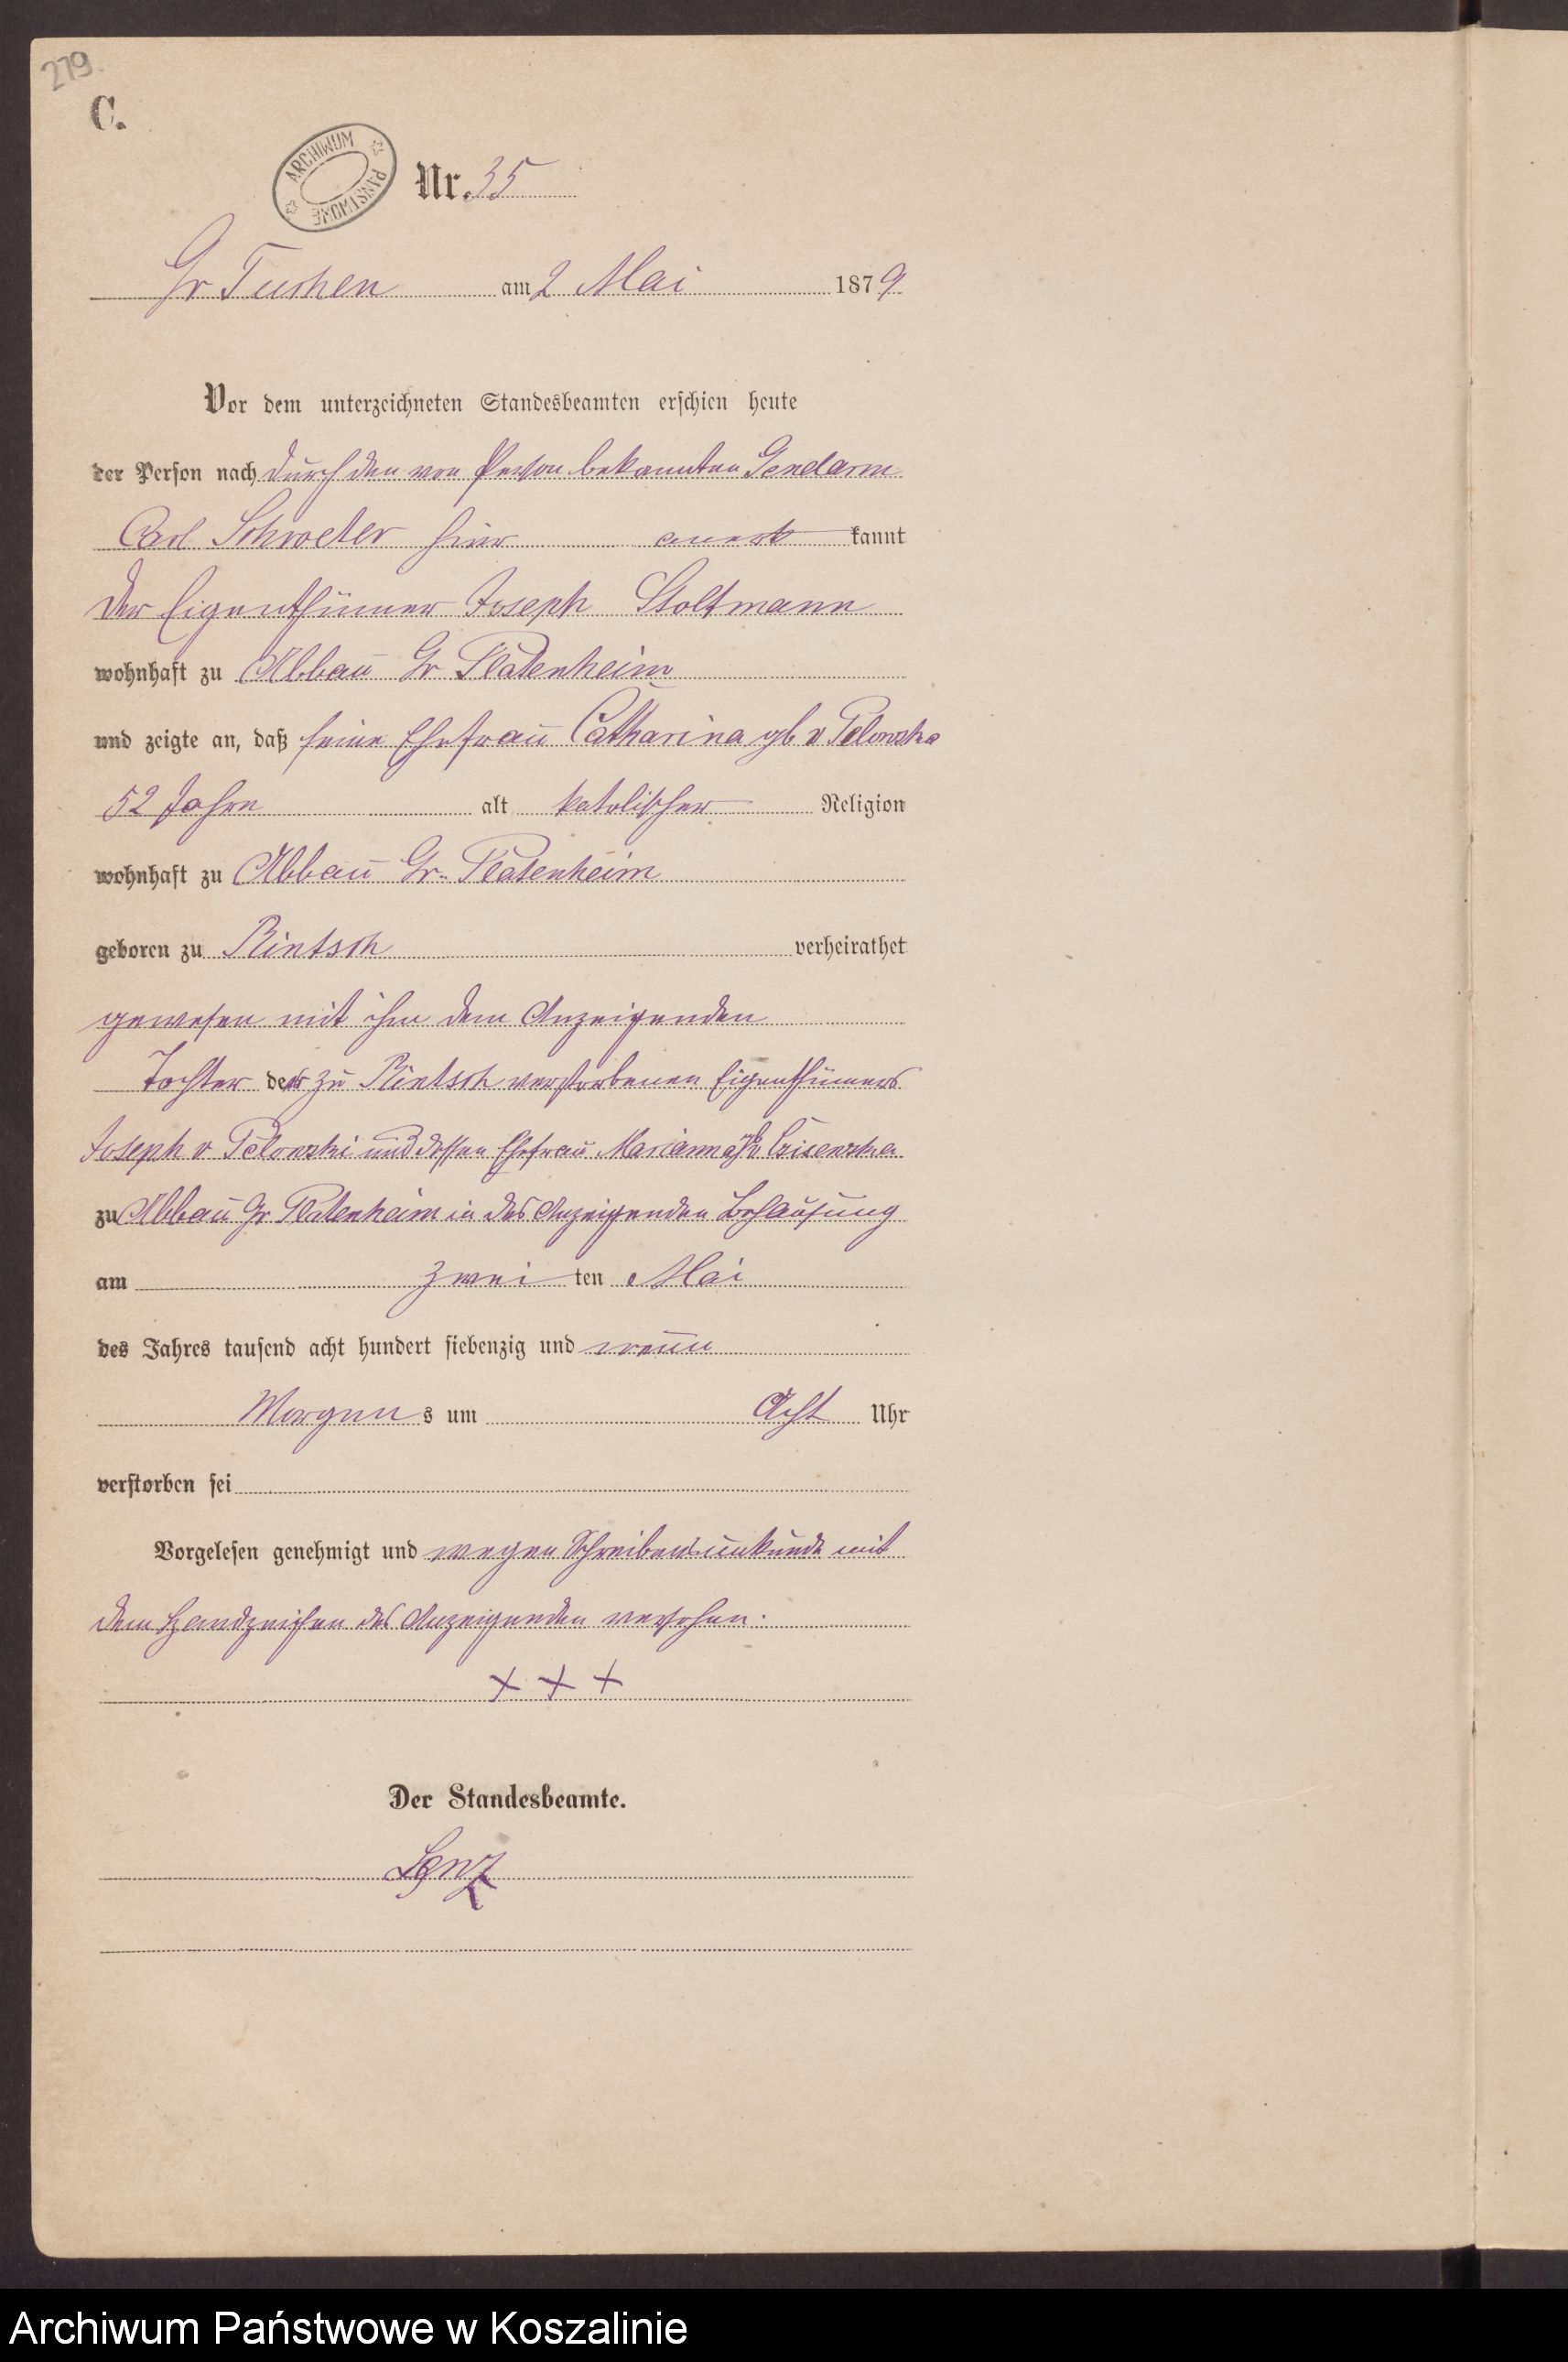 279
C.
ARCHIWUM PAŃSTWOWE
Nr. 35
Gr Tuchen am 2 Mai 1879
Vor dem unterzeichneten Standesbeamten erschien heute
der Person nach durch den von Person bekannten Gendarm
Carl Schroeter hier anerkannt
der Eigenthümer Joseph Stoltmann
wohnhaft zu Abbau Gr Platenheim
und zeigte an, daß seine Ehefrau Catharina gb v Pelowska
52 Jahre alt katolischer Religion
wohnhaft zu Abbau Gr. Platenheim
geboren zu Rintsch verheirathet
gewesen mit ihm dem Anzeigenden
Tochter des zu Rintsch verstorbenen Eigenthümers
Joseph v Pelowski und dessen Ehefrau Marianna gb v Czisewska
zu Abbau Gr Platenheim in des Anzeigenden Behausung
am zwei ten Mai
des Jahres tausend acht hundert siebenzig und neun
Morgens um Acht Uhr
verstorben sei
Vorgelesen genehmigt und wegen Schreibensunkunde mit
dem Handzeichen des Anzeigenden versehen:
+ + +
Der Standesbeamte.
Lenz
Archiwum Państwowe w Koszalinie